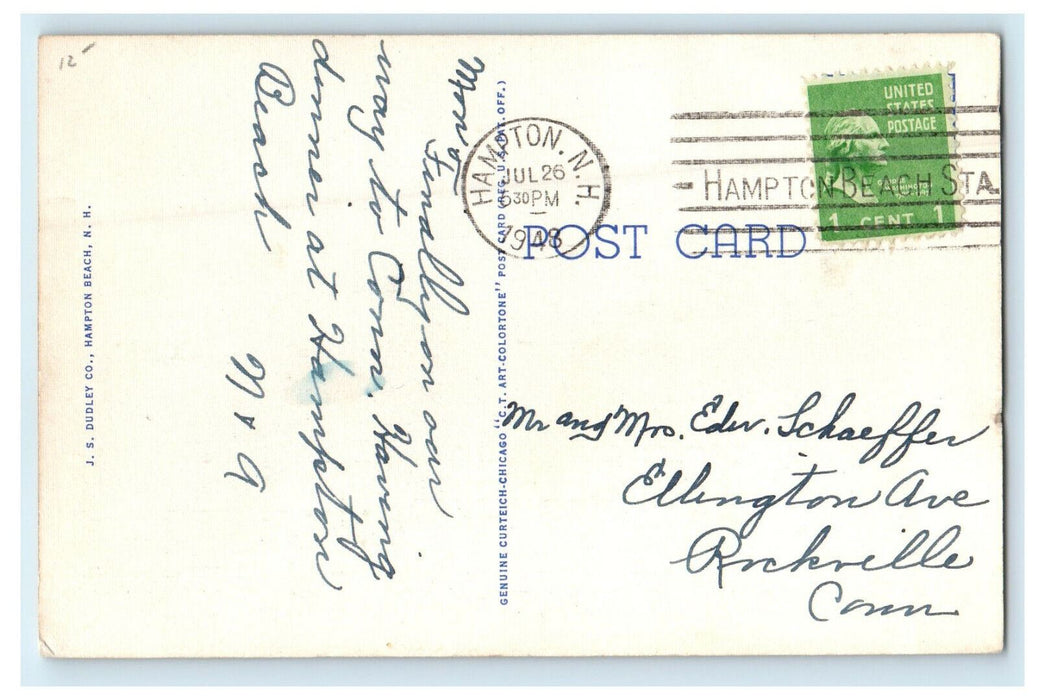 12
Mon
Finally on our
way to Conn. Having
dinner at Hampton
Beach
J. S. DUDLEY CO., HAMPTON BEACH, N. H.
GENUINE CURTEICH-CHICAGO "C. T. ART-COLORTONE" POST CARD (REG. U. S. PAT. OFF.)
HAMPTON, N. H.
JUL 26
630 PM
1948
HAMPTON BEACH STA.
UNITED
STATES
POSTAGE
1 CENT 1
POST CARD
Mr and Mrs. Edw. Schaeffer
Ellington Ave
Rockville
Conn